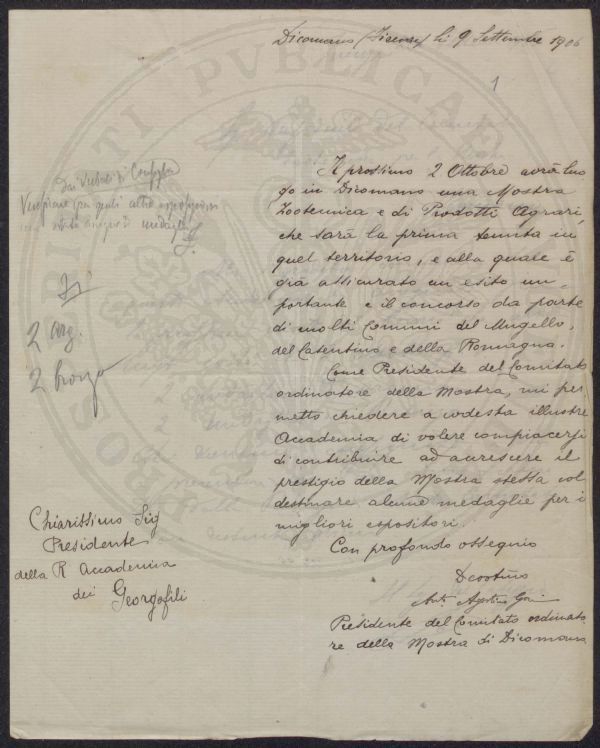 Dicomano (Firenze) li 9 Settembre 1906
1
Il prossimo 2 Ottobre avrà luo
go in Dicomano una Mostra
Zootecnica e di Prodotti Agrari,
che sarà la prima tenuta in
quel territorio, e alla quale è
già assicurato un esito im-
portante e il concorso da parte
di molti Comuni del Mugello,
del Casentino e della Romagna.
Come Presidente del Comitato
ordinatore della Mostra, mi per
metto chiedere a codesta illustre
Accademia di volere compiacersi
di contribuire ad accrescere il
prestigio della Mostra stessa col
destinare alcune medaglie per i
migliori espositori.
Con profondo ossequio
Devotmo
Presidente del Comitato ordinato
re della Mostra di Dicomano
medaglie
2 arg.
2 bronzo
Chiarissimo Sig
Presidente
della R Accademia
dei Georgofili